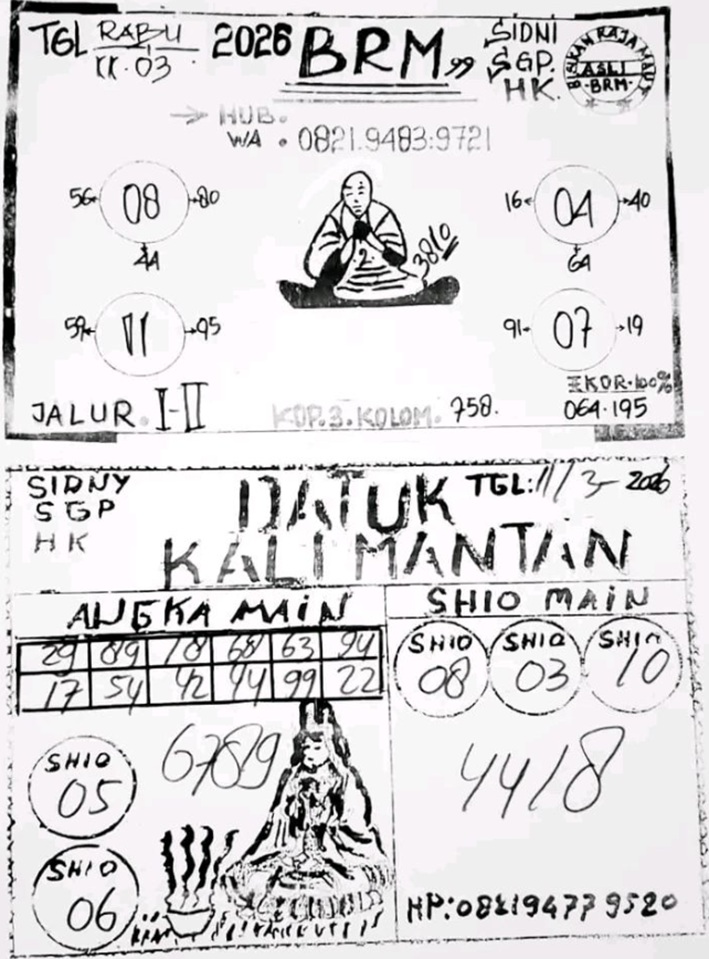 TGL RABU 2026 BRM,, SIDNI
11.03 SGP.
HK.
BISIKAN RAJA MAUT
ASLI
BRM
→ HUB.
WA . 0821.9483.9721
56 08 80
44
16 04 40
64
3810
2
59 11 95
91 07 19
EKOR.100%
JALUR. I-II
KOP.3.KOLOM. 758.
064.195
SIDNY
SGP
HK
DATUK
KALIMANTAN
TGL:11/3-2026
ANGKA MAIN
29 89 18 68 63 94
17 54 42 44 99 22
SHIO MAIN
SHIO 08
SHIO 03
SHIO 10
SHIO
05
6789
4418
SHIO
06
HP:082194779520